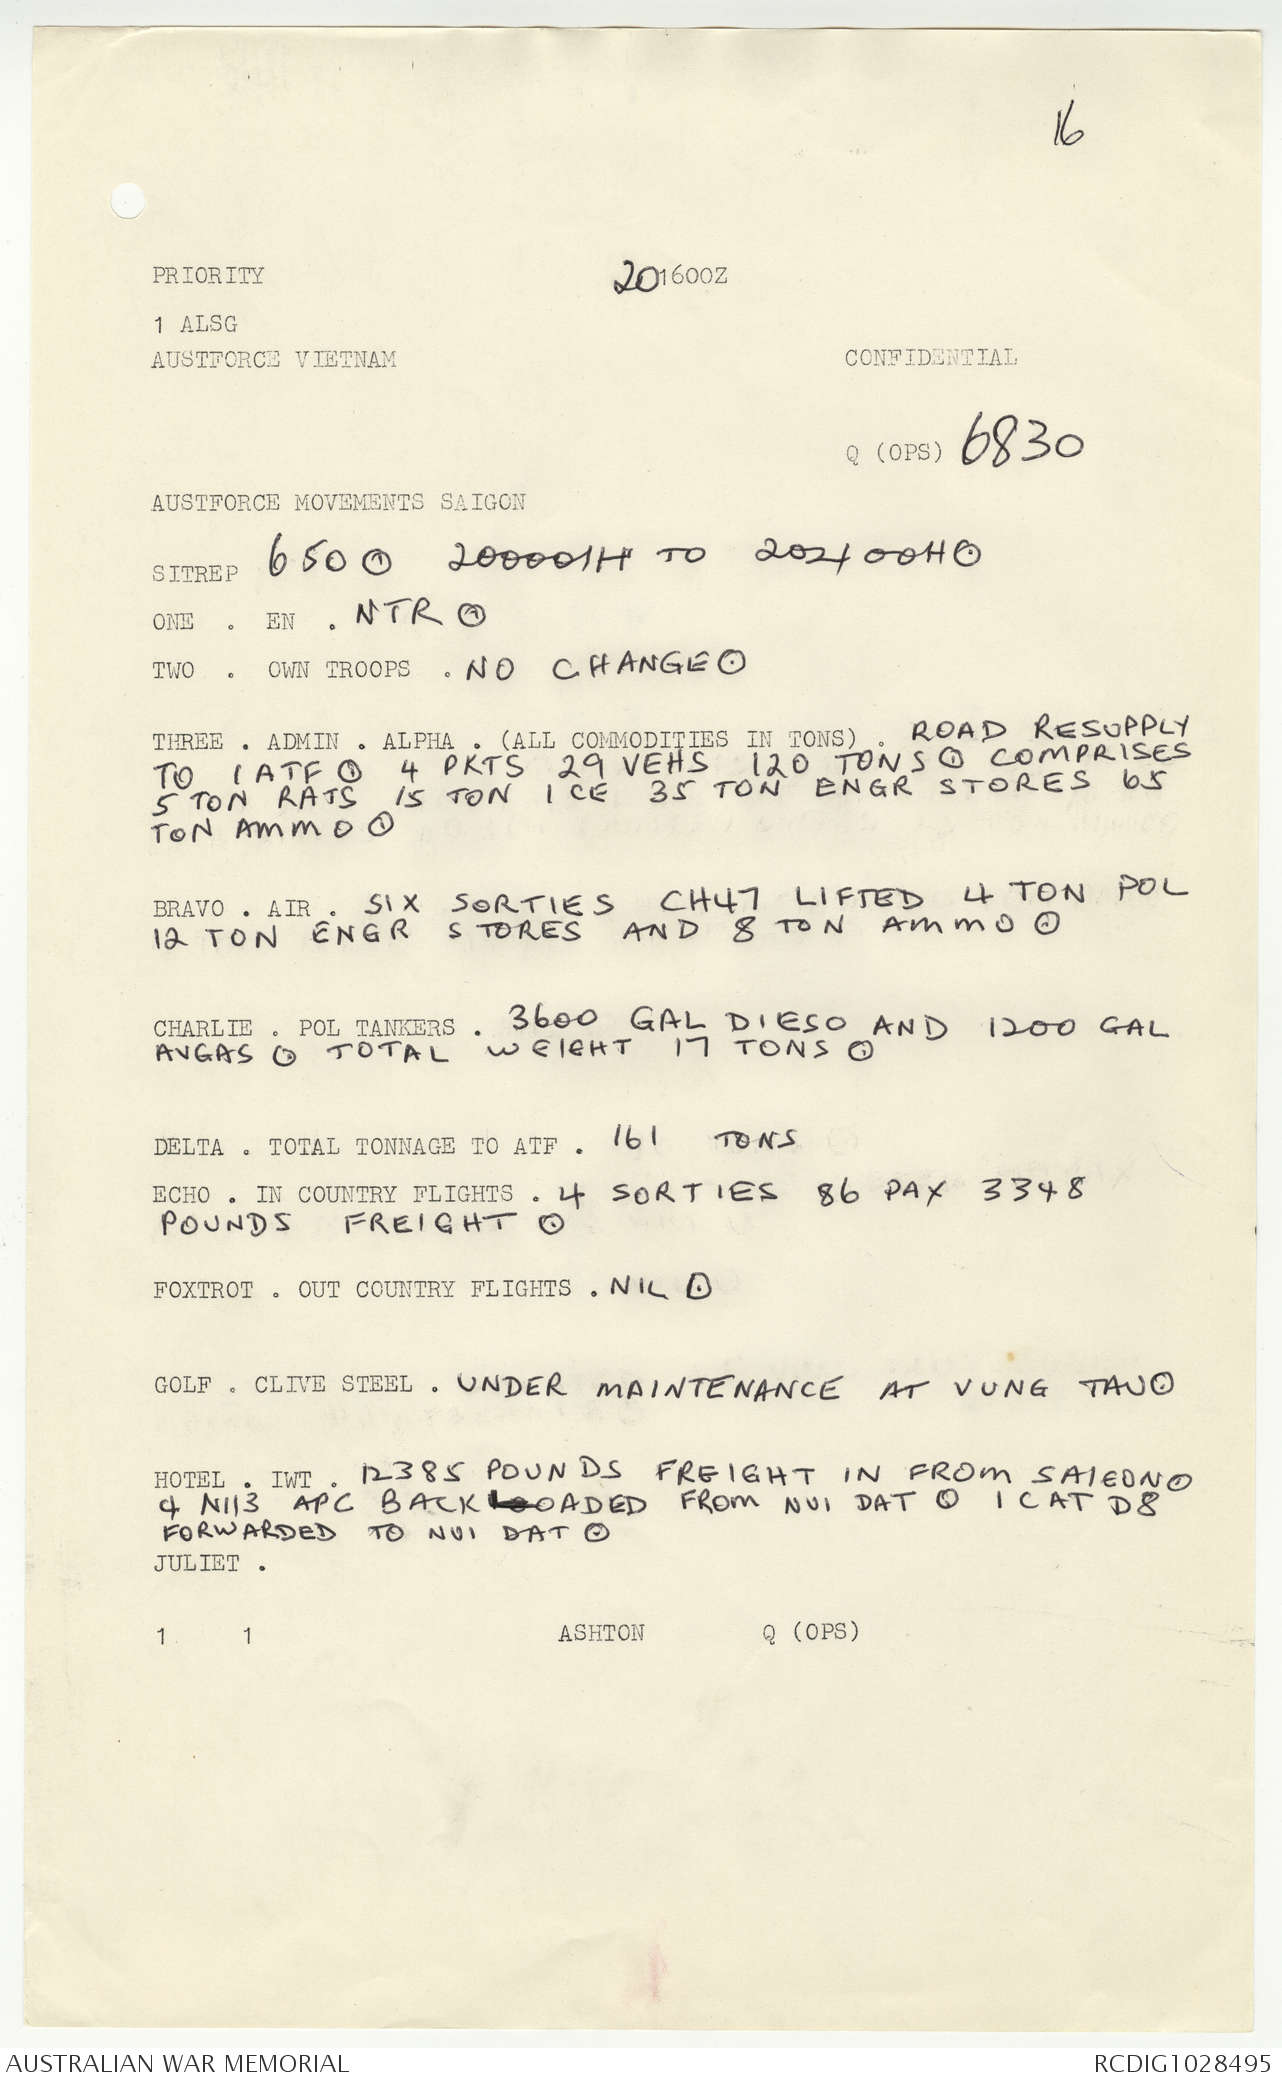 16
PRIORITY 201600Z
1 ALSG
AUSTFORCE VIETNAM CONFIDENTIAL
Q (OPS) 6830
AUSTFORCE MOVEMENTS SAIGON
SITREP 650⊙ 200001H TO 202400H⊙
ONE . EN . NTR⊙
TWO . OWN TROOPS . NO CHANGE⊙
THREE . ADMIN . ALPHA . (ALL COMMODITIES IN TONS) . ROAD RESUPPLY
TO 1 ATF⊙ 4 PKTS 29 VEHS 120 TONS⊙ COMPRISES
5 TON RATS 15 TON ICE 35 TON ENGR STORES 65
TON AMMO⊙
BRAVO . AIR . SIX SORTIES CH47 LIFTED 4 TON POL
12 TON ENGR STORES AND 8 TON AMMO⊙
CHARLIE . POL TANKERS . 3600 GAL DIESO AND 1200 GAL
AVGAS⊙ TOTAL WEIGHT 17 TONS⊙
DELTA . TOTAL TONNAGE TO ATF . 161 TONS
ECHO . IN COUNTRY FLIGHTS . 4 SORTIES 86 PAX 3348
POUNDS FREIGHT⊙
FOXTROT . OUT COUNTRY FLIGHTS . NIL⊙
GOLF . CLIVE STEEL . UNDER MAINTENANCE AT VUNG TAU⊙
HOTEL . IWT . 12385 POUNDS FREIGHT IN FROM SAIGON⊙
4 M113 APC BACKLOADED FROM NUI DAT⊙ 1 CAT D8
FORWARDED TO NUI DAT⊙
JULIET .
1 1 ASHTON Q (OPS)
AUSTRALIAN WAR MEMORIAL RCDIG1028495